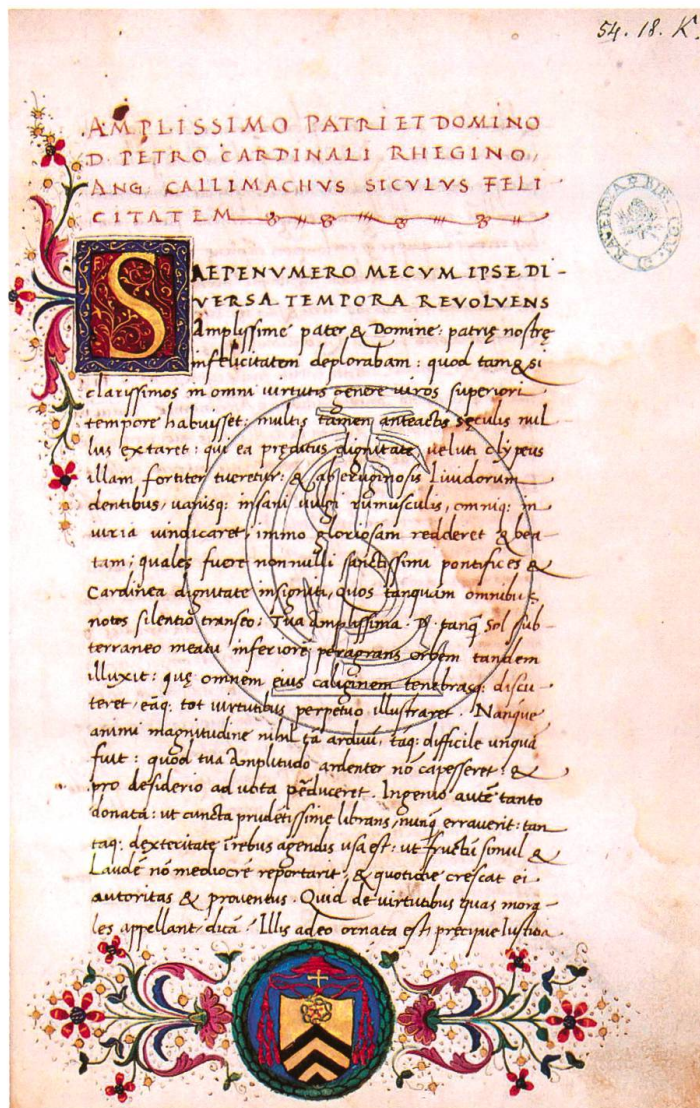 54. 18. K.
AMPLISSIMO PATRI ET DOMINO
D. PETRO CARDINALI RHEGINO,
ANG CALLIMACHVS SICVLVS FELI
CITATEM
SAEPENVMERO MECVM IPSE DI-
VERSA TEMPORA REVOLVENS
Amplissime pater & Domine: patrię nostrę
infelicitatem deplorabam: quod tam & si
clarissimos in omni virtutis genere viros superiori
tempore habuisset: multis tamen anteactis sęculis nul
lus extaret: qui ea pręditus dignitate, veluti clypeus
illam fortiter tueretur: & ab eruginosis liuidorum
dentibus, variisq: insani vulgi rumusculis, omniq: in
iuria vindicaret, immo gloriosam redderet & bea
tam; quales fuere nonnulli sanctissimi pontifices &
Cardinea dignitate insigniti, quos tanquam omnibus
notos silentio transeo: Tua Amplissima. D. tanq̃ Sol sub
terraneo meatu inferiorẽ peragrans orbem tandem
illuxit: quę omnem eius caliginem tenebrasq: discu
teret, eãq: tot virtutibus perpetuo illustraret. Nanque
animi magnitudine nihil tã arduũ, tãq: difficile unquã
fuit: quod tua Amplitudo ardenter nõ capesseret: &
pro desiderio ad vota pẽduceret. Ingenio autẽ tanto
donata: ut cuncta prudẽtissime librans, nunq̃ errauerit: tan
taq: dexteritate ĩ rebus agendis usa est: ut fructũ simul &
Laudẽ nõ mediocrẽ reportarit, & quotidie crescat ei
autoritas & prouentus. Quid de virtutibus quas mora
les appellant, dicã? Illis adeo ornata est, precipue Iusticia
S